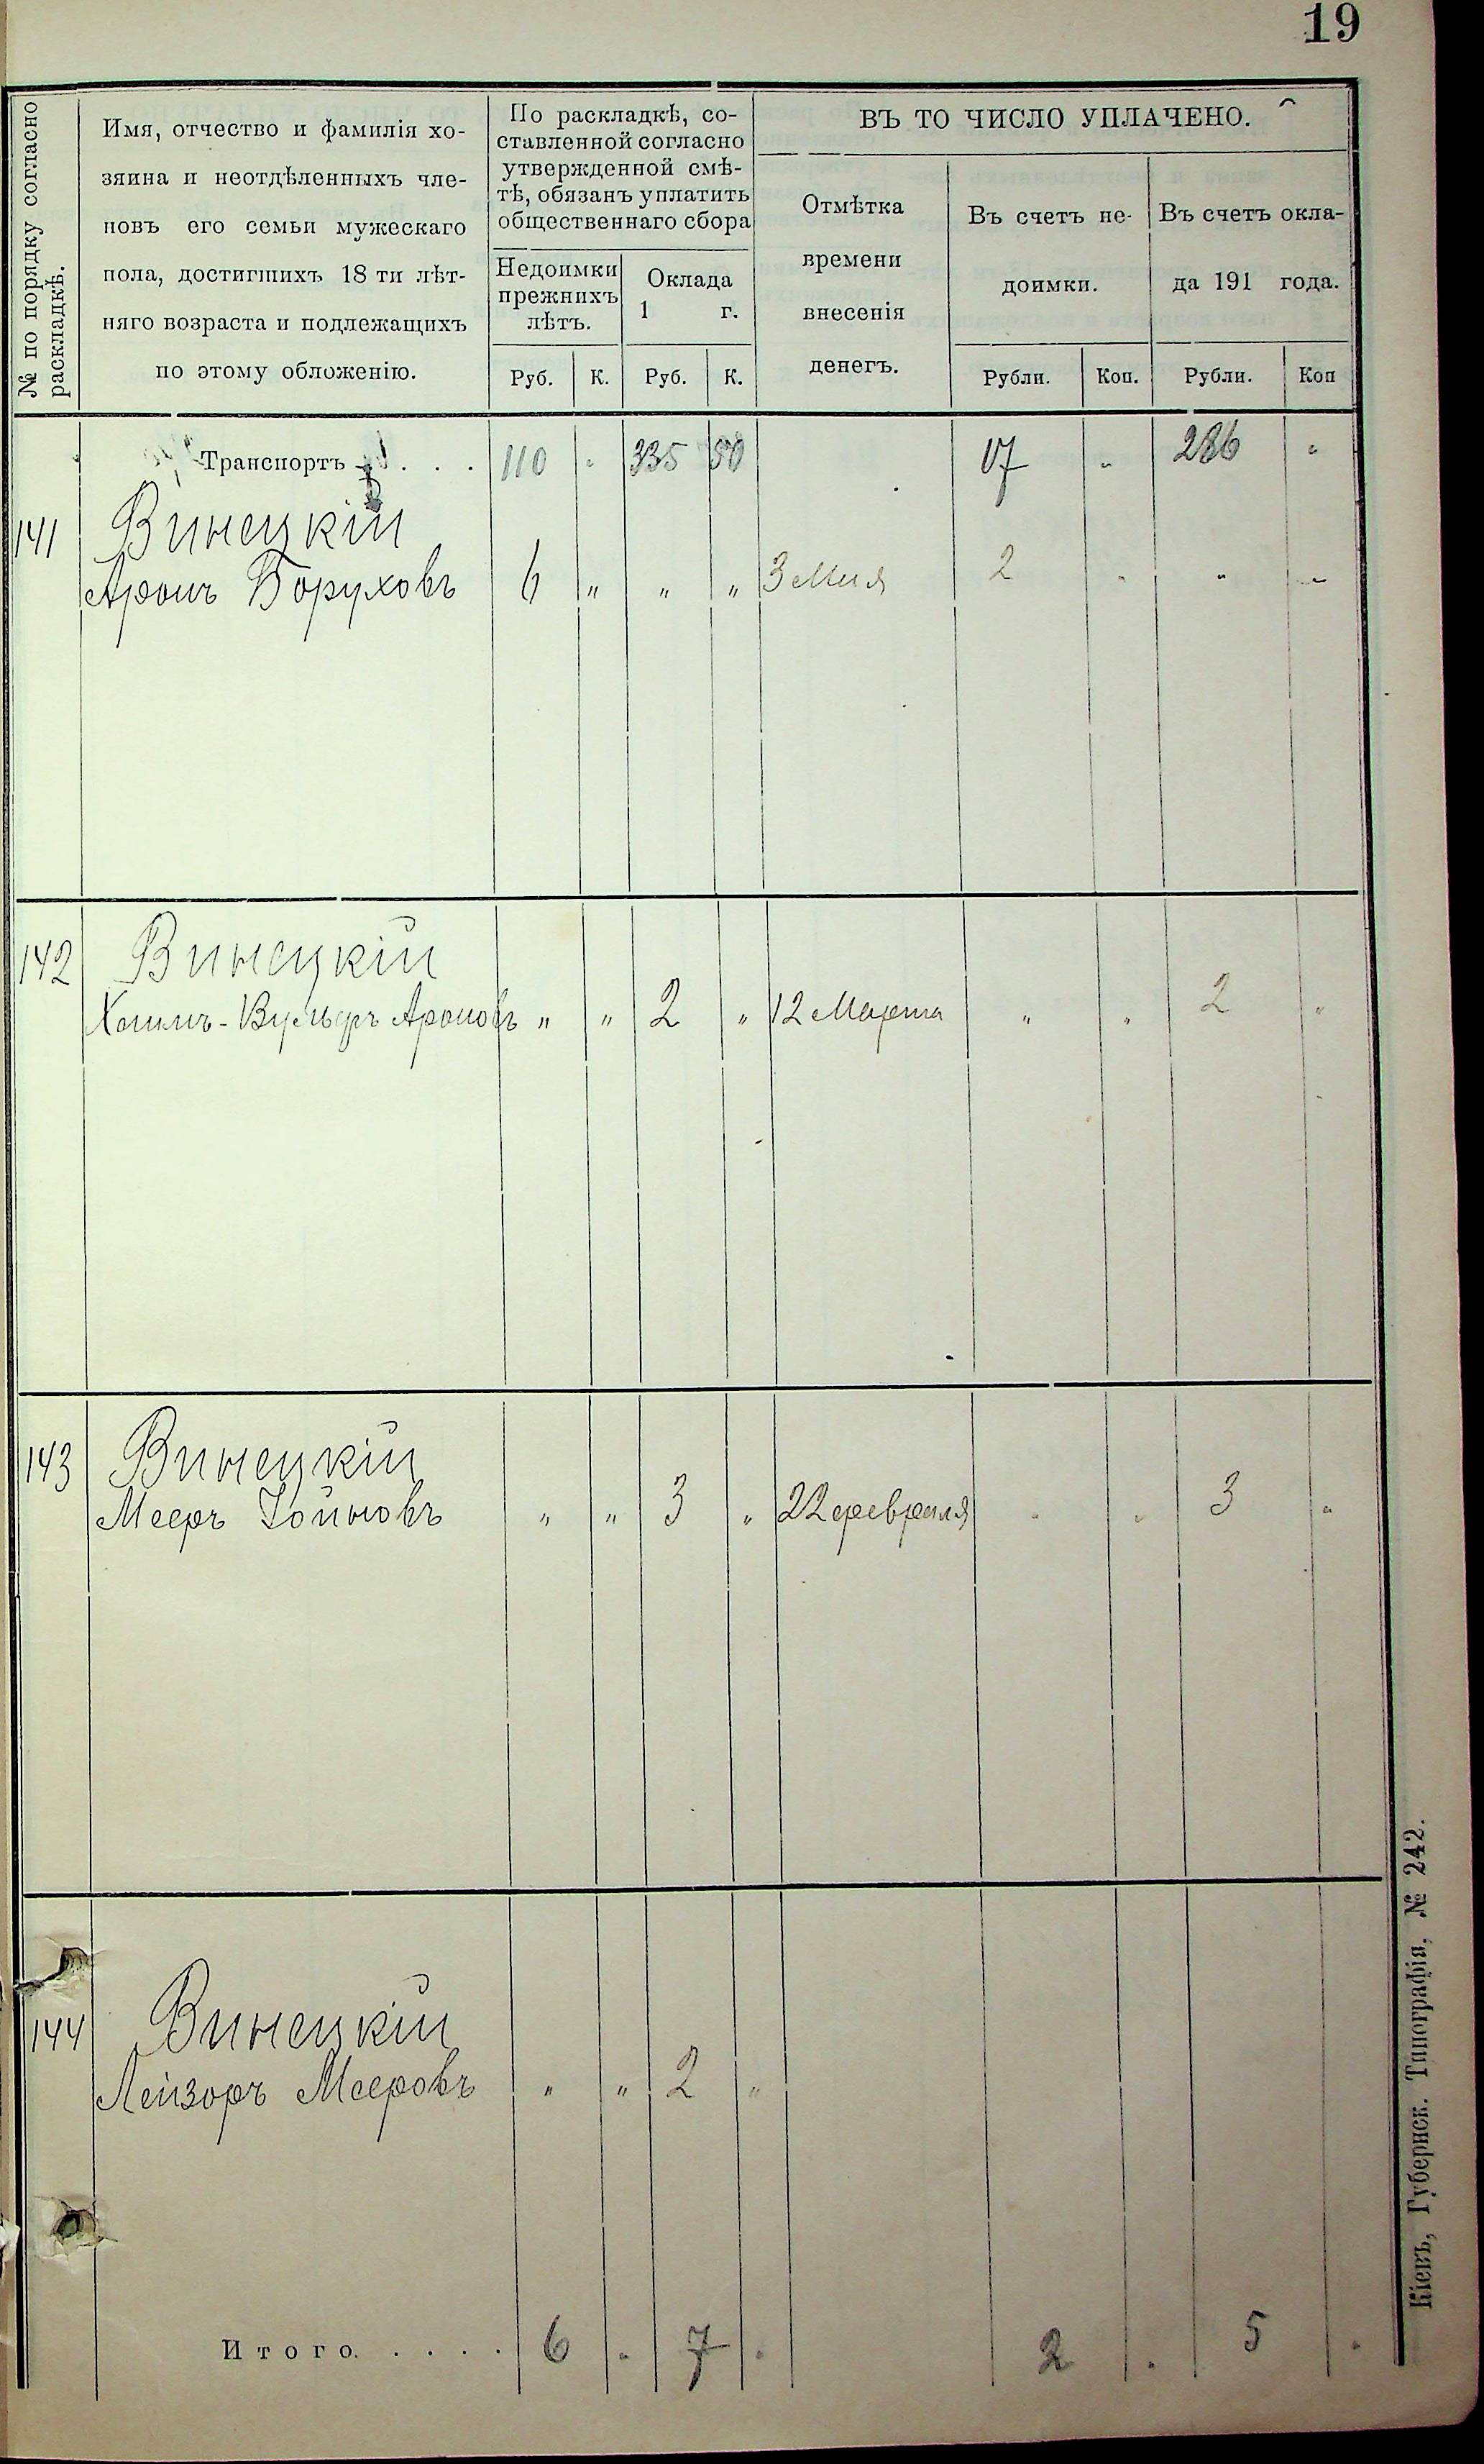 19
№ по порядку согласно
раскладкѣ.
Имя, отчество и фамилія хо-
зяина и неотдѣленныхъ чле-
новъ его семьи мужескаго
пола, достигшихъ 18 ти лѣт-
няго возраста и подлежащихъ
по этому обложенію.
По раскладкѣ, со-
ставленной согласно
утвержденной смѣ-
тѣ, обязанъ уплатить
общественнаго сбора
Недоимки
прежнихъ
лѣтъ.
Оклада
1 г.
Руб. К. Руб. К.
ВЪ ТО ЧИСЛО УПЛАЧЕНО.
Отмѣтка
времени
внесенія
денегъ.
Въ счетъ не-
доимки.
Рубли. Коп.
Въ счетъ окла-
да 191 года.
Рубли. Коп
Транспортъ . . . 110 " 335 50 17 " 286 "
141 Винецкій
Аронъ Боруховъ 6 " " " 3 Мая 2 " " "
142 Винецкій
Хаимъ-Вульфъ Ароновъ " " 2 " 12 Марта " " 2 "
143 Винецкій
Мееръ Іойновъ " " 3 " 22 февраля " " 3 "
144 Винецкій
Лейзоръ Мееровъ " " 2 "
Итого. . . . . 6 . 7 . 2 . 5 .
Кіевъ, Губернск. Типографія, № 242.